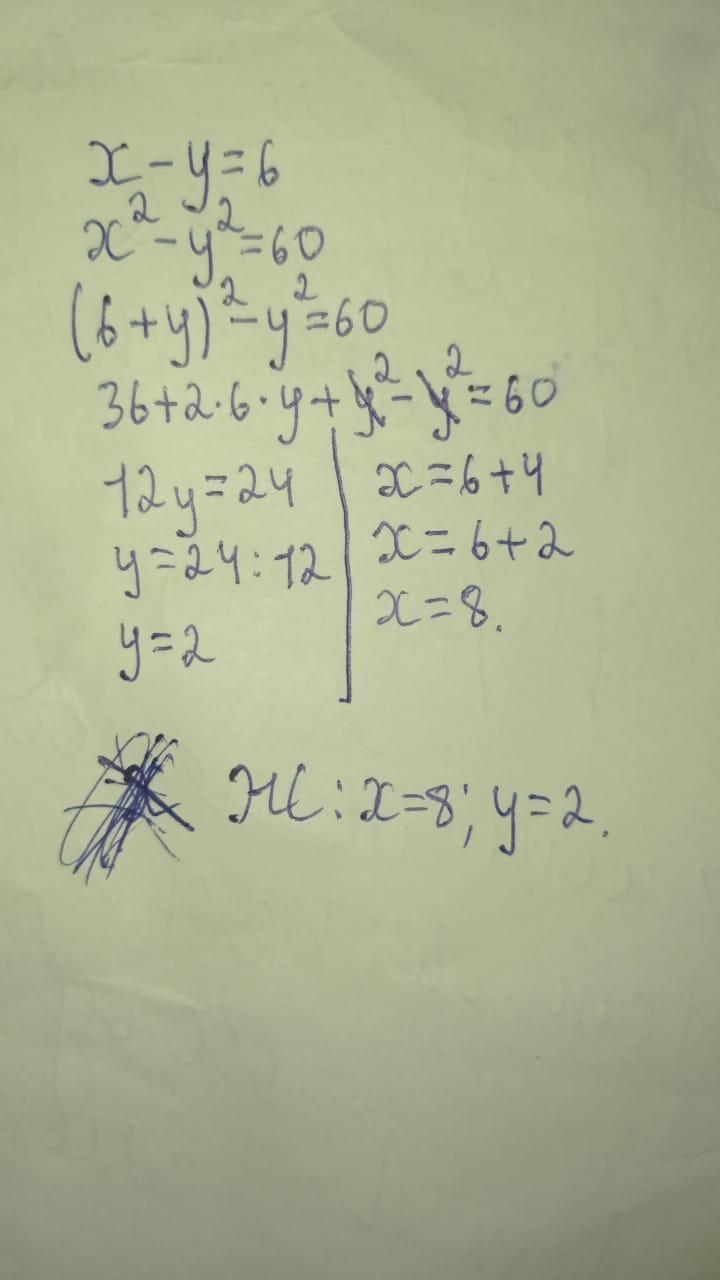 x-y=6
x²-y²=60
(6+y)²-y²=60
36+2·6·y+y²-y²=60
12y=24
y=24:12
y=2
x=6+y
x=6+2
x=8.
Ж: x=8; y=2.